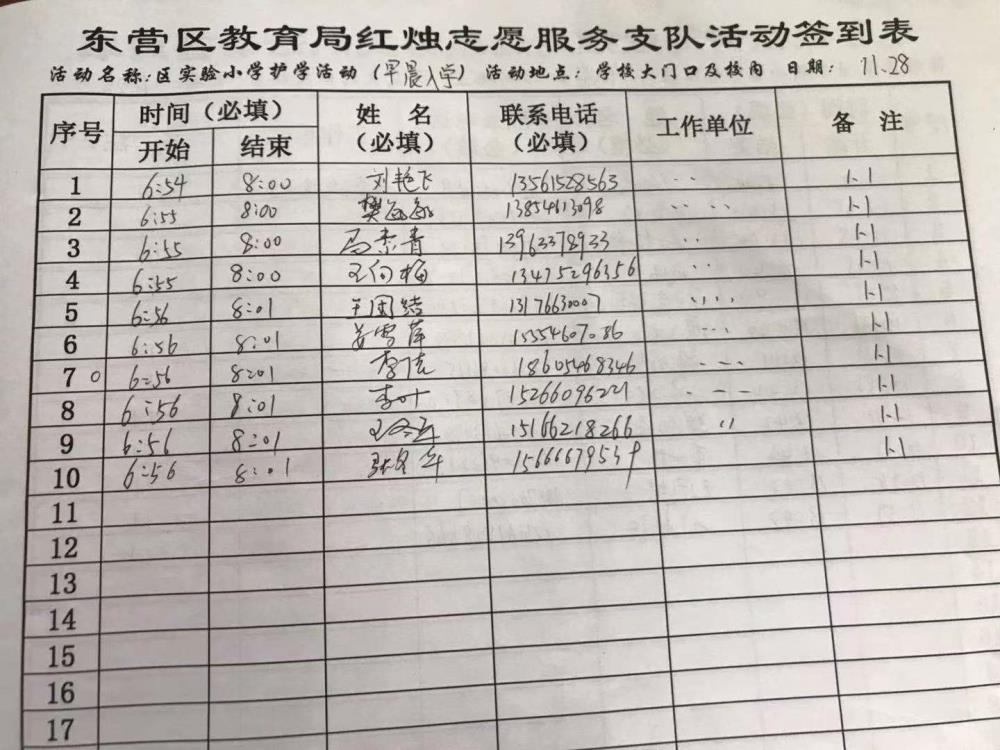 东营区教育局红烛志愿服务支队活动签到表
活动名称：区实验小学护学活动（早晨入学） 活动地点：学校大门口及校内 日期：11.28
序号 时间（必填） 姓名（必填） 联系电话（必填） 工作单位 备注
开始 结束
1 6:54 8:00 刘艳飞 13561528563 1-1
2 6:55 8:00 樊 13854613098 1-1
3 6:55 8:00 马素青 13963378933 1-1
4 6:55 8:00 王向梅 13475296356 1-1
5 6:56 8:01 王国结 13176630007 1-1
6 6:56 8:01 姜雪萍 15554607086 1-1
7 6:56 8:01 李洁 18605468346 1-1
8 6:56 8:01 李叶 15266096221 1-1
9 6:56 8:01 15166218266 1-1
10 6:56 8:01 张冬年 15666679539 1-1
11
12
13
14
15
16
17